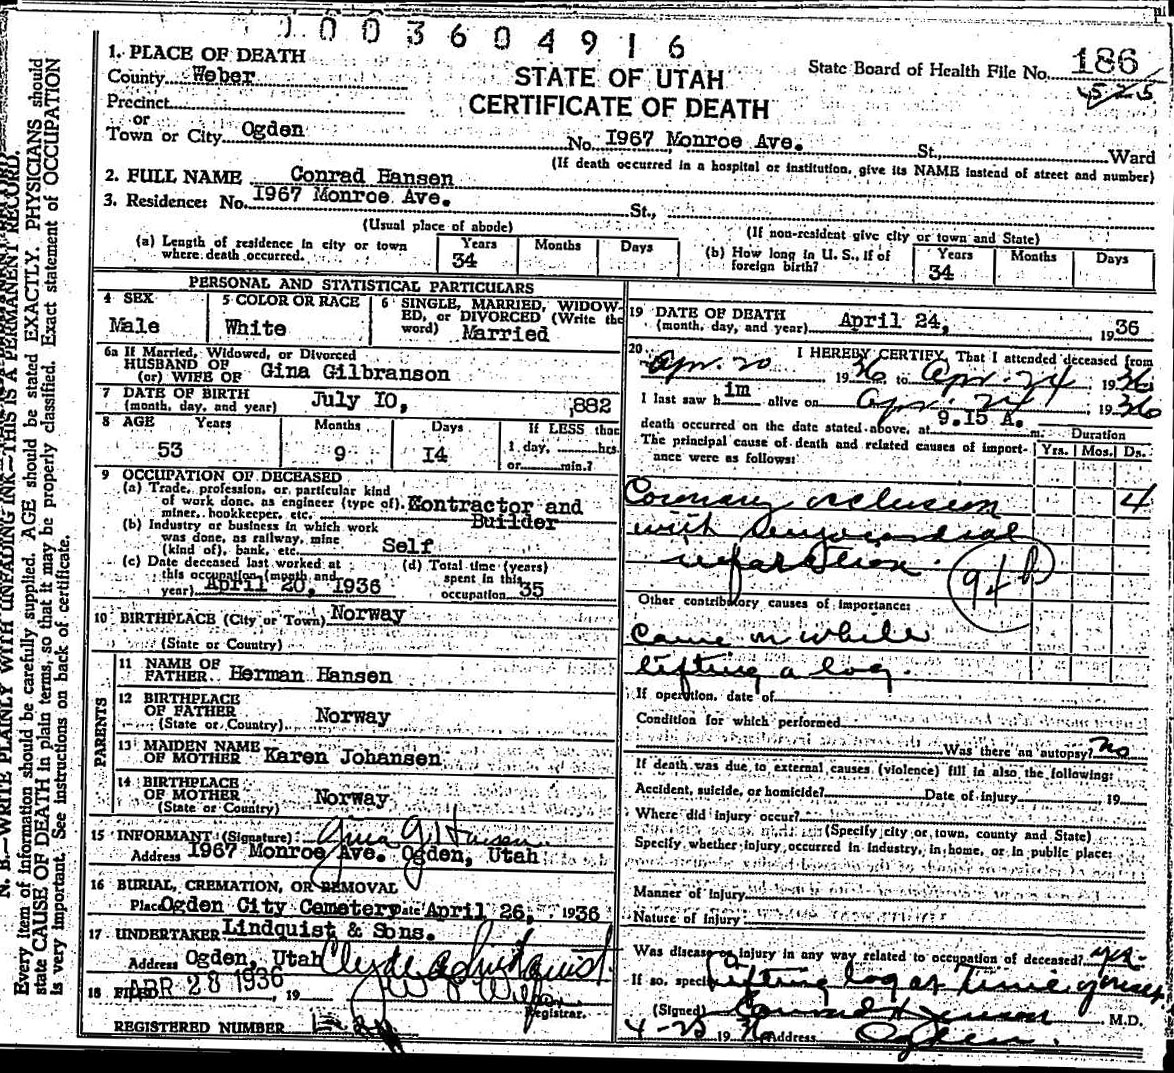 1003604916
1. PLACE OF DEATH
County Weber
STATE OF UTAH
State Board of Health File No. 186
Precinct
CERTIFICATE OF DEATH
or
Town or City Ogden No. 1967 Monroe Ave. St., Ward
(If death occurred in a hospital or institution, give its NAME instead of street and number)
2. FULL NAME Conrad Hansen
3. Residence: No. 1967 Monroe Ave. St.,
(Usual place of abode)
(If non-resident give city or town and State)
(a) Length of residence in city or town where death occurred. Years 34 Months Days
(b) How long in U. S., if of foreign birth? Years 34 Months Days
PERSONAL AND STATISTICAL PARTICULARS
4 SEX Male
5 COLOR OR RACE White
6 SINGLE, MARRIED, WIDOWED, or DIVORCED (Write the word) Married
6a If Married, Widowed, or Divorced
HUSBAND OF
(or) WIFE OF Gina Gilbranson
7 DATE OF BIRTH
(month, day, and year) July 10, 1882
8 AGE Years 53 Months 9 Days 14 If LESS than 1 day, hrs. or min.?
9 OCCUPATION OF DECEASED
(a) Trade, profession, or particular kind
of work done, as engineer (type of),
miner, bookkeeper, etc. Contractor and Builder
(b) Industry or business in which work
was done, as railway, mine
(kind of), bank, etc. Self
(c) Date deceased last worked at
this occupation (month and
year) April 20, 1936
(d) Total time (years)
spent in this
occupation 35
10 BIRTHPLACE (City or Town) Norway
(State or Country)
PARENTS
11 NAME OF
FATHER Herman Hansen
12 BIRTHPLACE
OF FATHER Norway
(State or Country)
13 MAIDEN NAME
OF MOTHER Karen Johansen
14 BIRTHPLACE
OF MOTHER Norway
(State or Country)
15 INFORMANT (Signature) Gina G. Hansen
Address 1967 Monroe Ave. Ogden, Utah
16 BURIAL, CREMATION, OR REMOVAL
Place Ogden City Cemetery Date April 26, 1936
17 UNDERTAKER Lindquist & Sons.
Address Ogden, Utah Clyde A. Lindquist
18 FILED APR 28 1936, 19
Registrar.
REGISTERED NUMBER
19 DATE OF DEATH
(month, day, and year) April 24, 1936
20 I HEREBY CERTIFY, That I attended deceased from
Apr. 20 1936, to Apr. 24 1936
I last saw h im alive on Apr. 24 1936
death occurred on the date stated above, at 9.15 A. m. Duration
The principal cause of death and related causes of importance were as follows: Yrs. Mos. Ds.
Coronary occlusion 4
with myocardial
infarction.
94b
Other contributory causes of importance:
Came on while
lifting a log.
If operation, date of
Condition for which performed
Was there an autopsy? no
If death was due to external causes (violence) fill in also the following:
Accident, suicide, or homicide? Date of injury 19
Where did injury occur?
(Specify city or town, county and State)
Specify whether injury occurred in industry, in home, or in public place:
Manner of injury
Nature of injury
Was disease or injury in any way related to occupation of deceased? yes.
If so, specify Lifting log at time of onset
(Signed) Conrad H. Jenson M.D.
4-25 1936 Address Ogden.
N. B.—WRITE PLAINLY WITH UNFADING INK—THIS IS A PERMANENT RECORD.
Every item of information should be carefully supplied. AGE should be stated EXACTLY. PHYSICIANS should
state CAUSE OF DEATH in plain terms, so that it may be properly classified. Exact statement of OCCUPATION
is very important. See instructions on back of certificate.